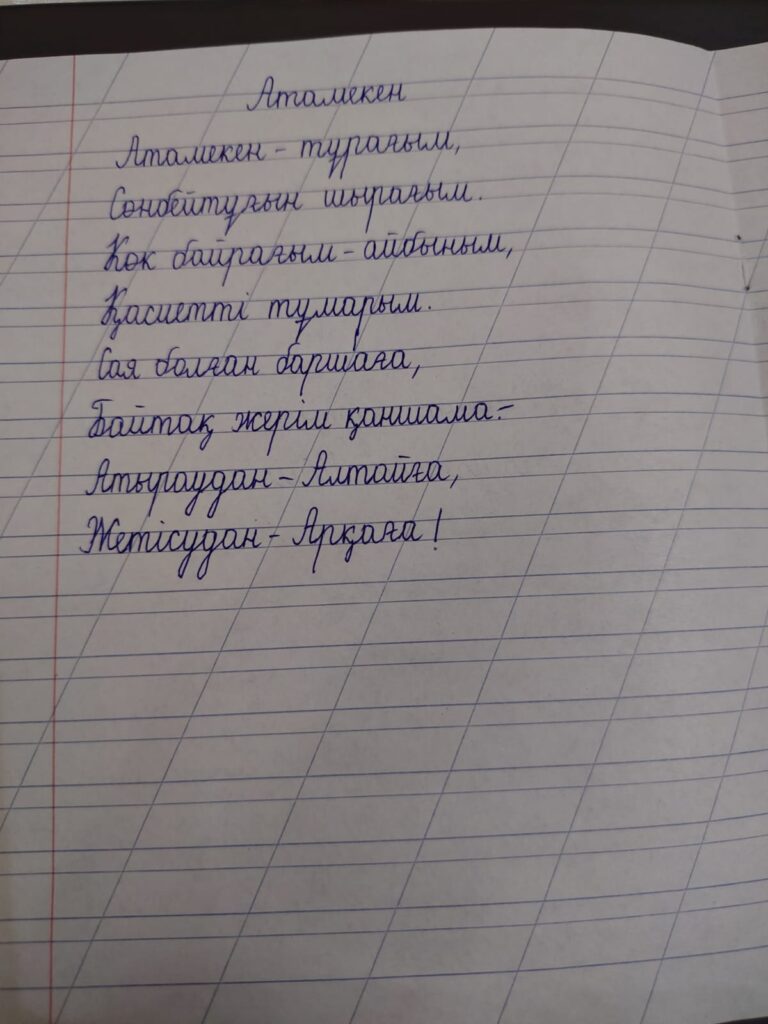 Атамекен
Атамекен - тұрағым,
Сөнбейтұғын шырағым.
Көк байрағым - айбыным,
Қасиетті тұмарым.
Сая болған баршаға,
Байтақ жерім қаншама: -
Атыраудан - Алтайға,
Жетісудан - Арқаға!